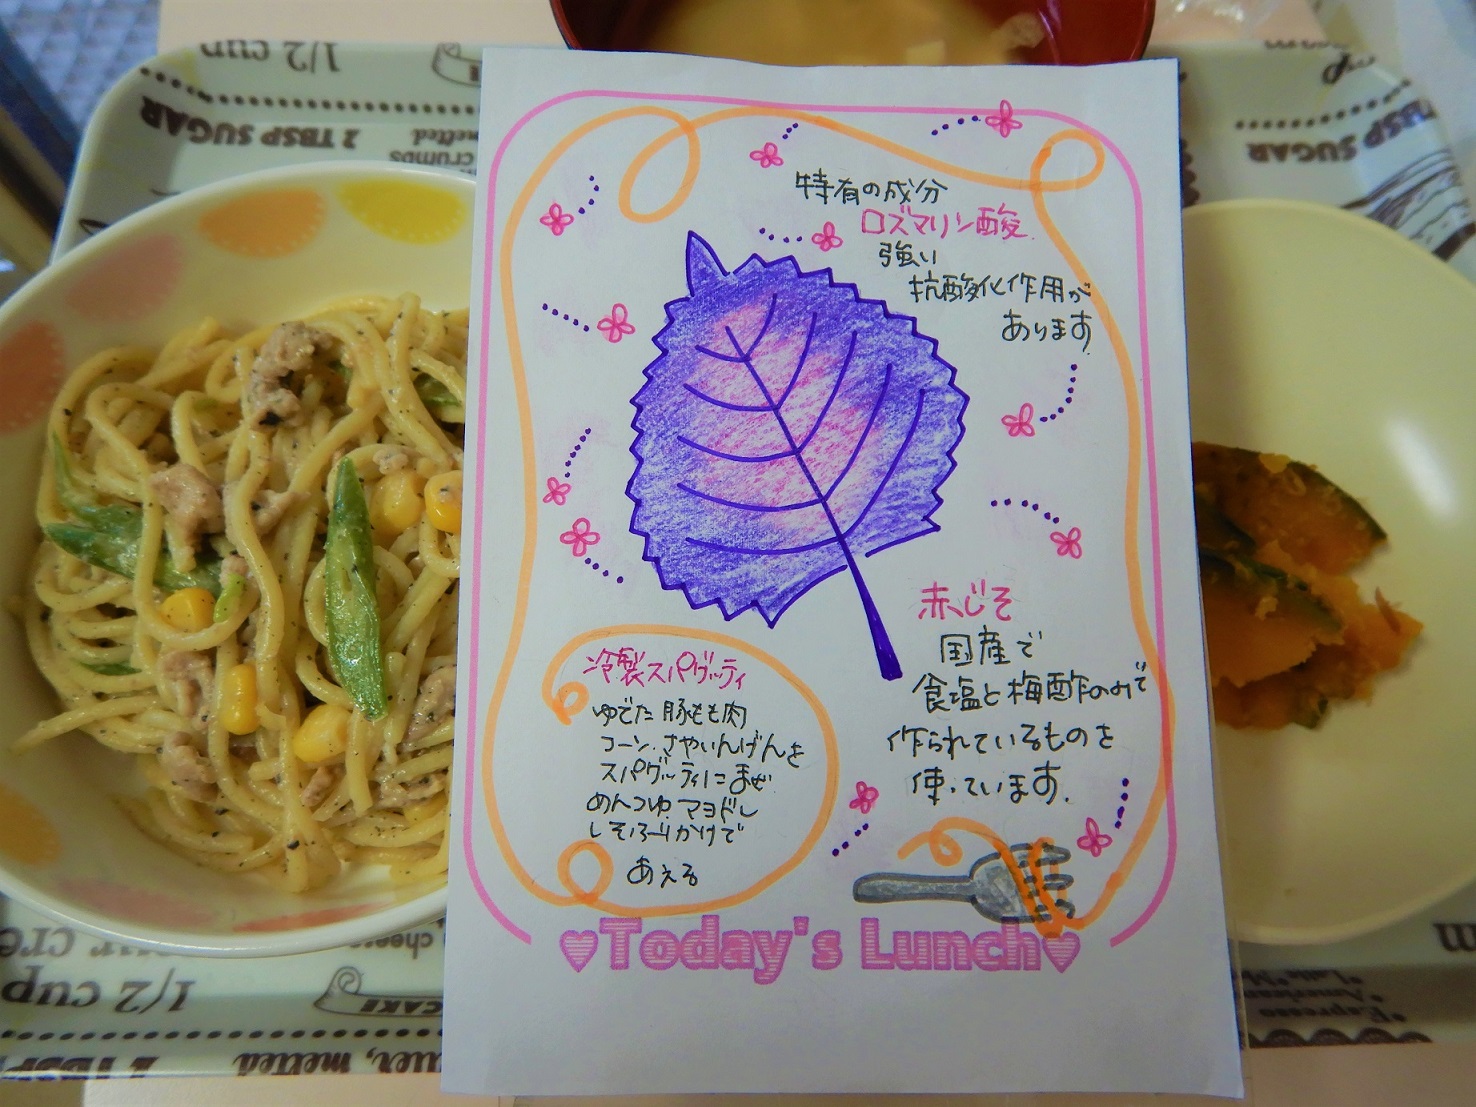 特有の成分
ロズマリン酸
強い
抗酸化作用が
あります
赤じそ
国産で
食塩と梅酢のみで
作られているものを
使っています.
冷製スパゲッティ
ゆでた豚もも肉
コーン.さやいんげんを
スパゲッティにまぜ
めんつゆ マヨドレ
しそふりかけで
あえる
♥Today's Lunch♥
1/2 cup
2 TBSP SUGAR
melted
crumbs
TBSP SUGAR
1/2 cup
CAKE
melted,
Espresso